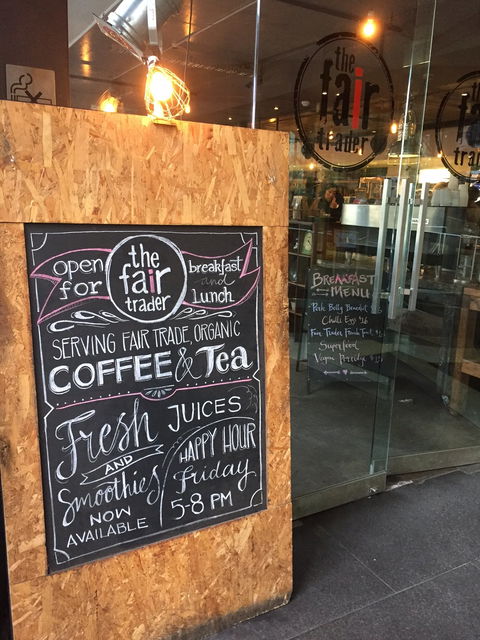 the
fair
trader
tra
open
for
the
fair
trader
breakfast
and
Lunch
SERVING FAIR TRADE, ORGANIC
COFFEE & Tea
Fresh
JUICES
AND
Smoothies
NOW
AVAILABLE
HAPPY HOUR
Friday
5-8 PM
BREAKFAST
MENU
Pork Belly Benedict
Chilli Eggs
Fair Trader French Toast
Superfood
Vegan Porridge